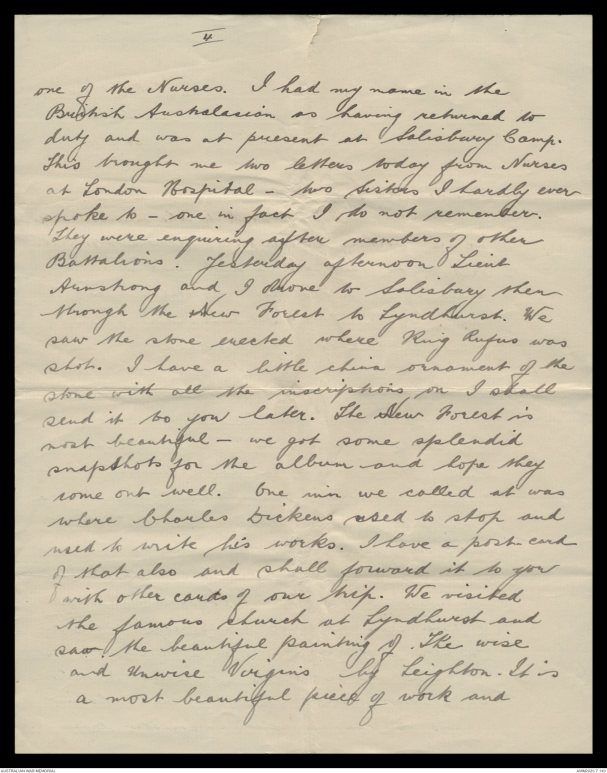 4
one of the Nurses. I had my name in the
British Australasian as having returned to
duty and was at present at Salisbury Camp.
This brought me two letters today from Nurses
at London Hospital - two Sisters I hardly ever
spoke to - one in fact I do not remember.
They were enquiring after members of other
Battalions. Yesterday afternoon Lieut
Armstrong and I drove to Salisbury then
through the New Forest to Lyndhurst. We
saw the stone erected where King Rufus was
shot. I have a little china ornament of the
stone with all the inscriptions on I shall
send it to you later. The New Forest is
most beautiful - we got some splendid
snapshots for the album and hope they
come out well. One inn we called at was
where Charles Dickens used to stop and
used to write his works. I have a post-card
of that also and shall forward it to you
with other cards of our trip. We visited
the famous church at Lyndhurst and
saw the beautiful painting of The wise
and Unwise Virgins by Leighton. It is
a most beautiful piece of work and
AUSTRALIAN WAR MEMORIAL